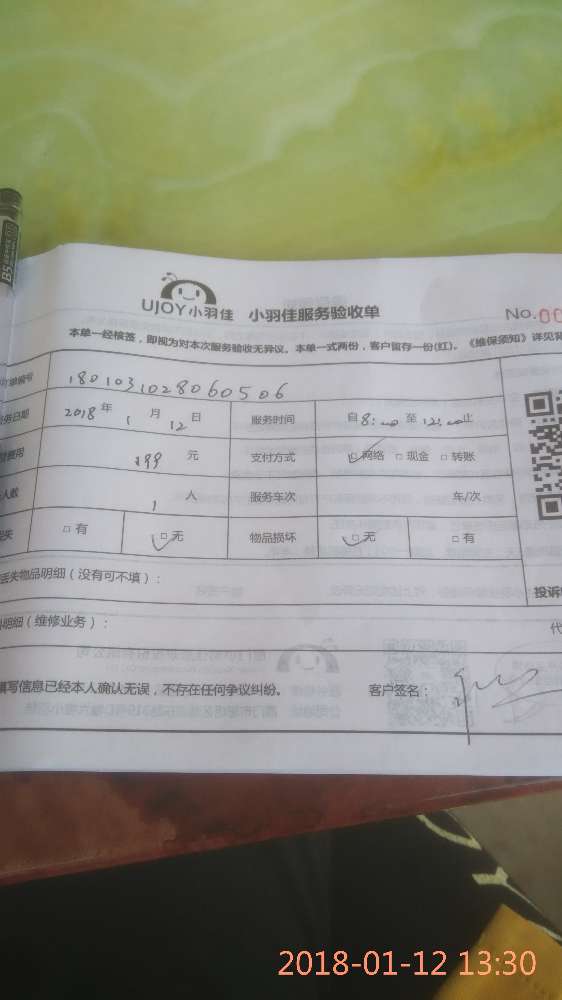 UJOY小羽佳 小羽佳服务验收单
No.00
本单一经核签，即视为对本次服务验收无异议。本单一式两份，客户留存一份(红)。《维保须知》详见背
单编号 1801031028060506
务日期 2018年 1月 12日 服务时间 自8:00至12:00止
费用 199元 支付方式 网络 □现金 □转账
人数 1人 服务车次 车/次
失 □有 □无 物品损坏 □无 □有
丢失物品明细（没有可不填）： 投诉
明细（维修业务）： 代
填写信息已经本人确认无误，不存在任何争议纠纷。 客户签名：
B5
2018-01-12 13:30